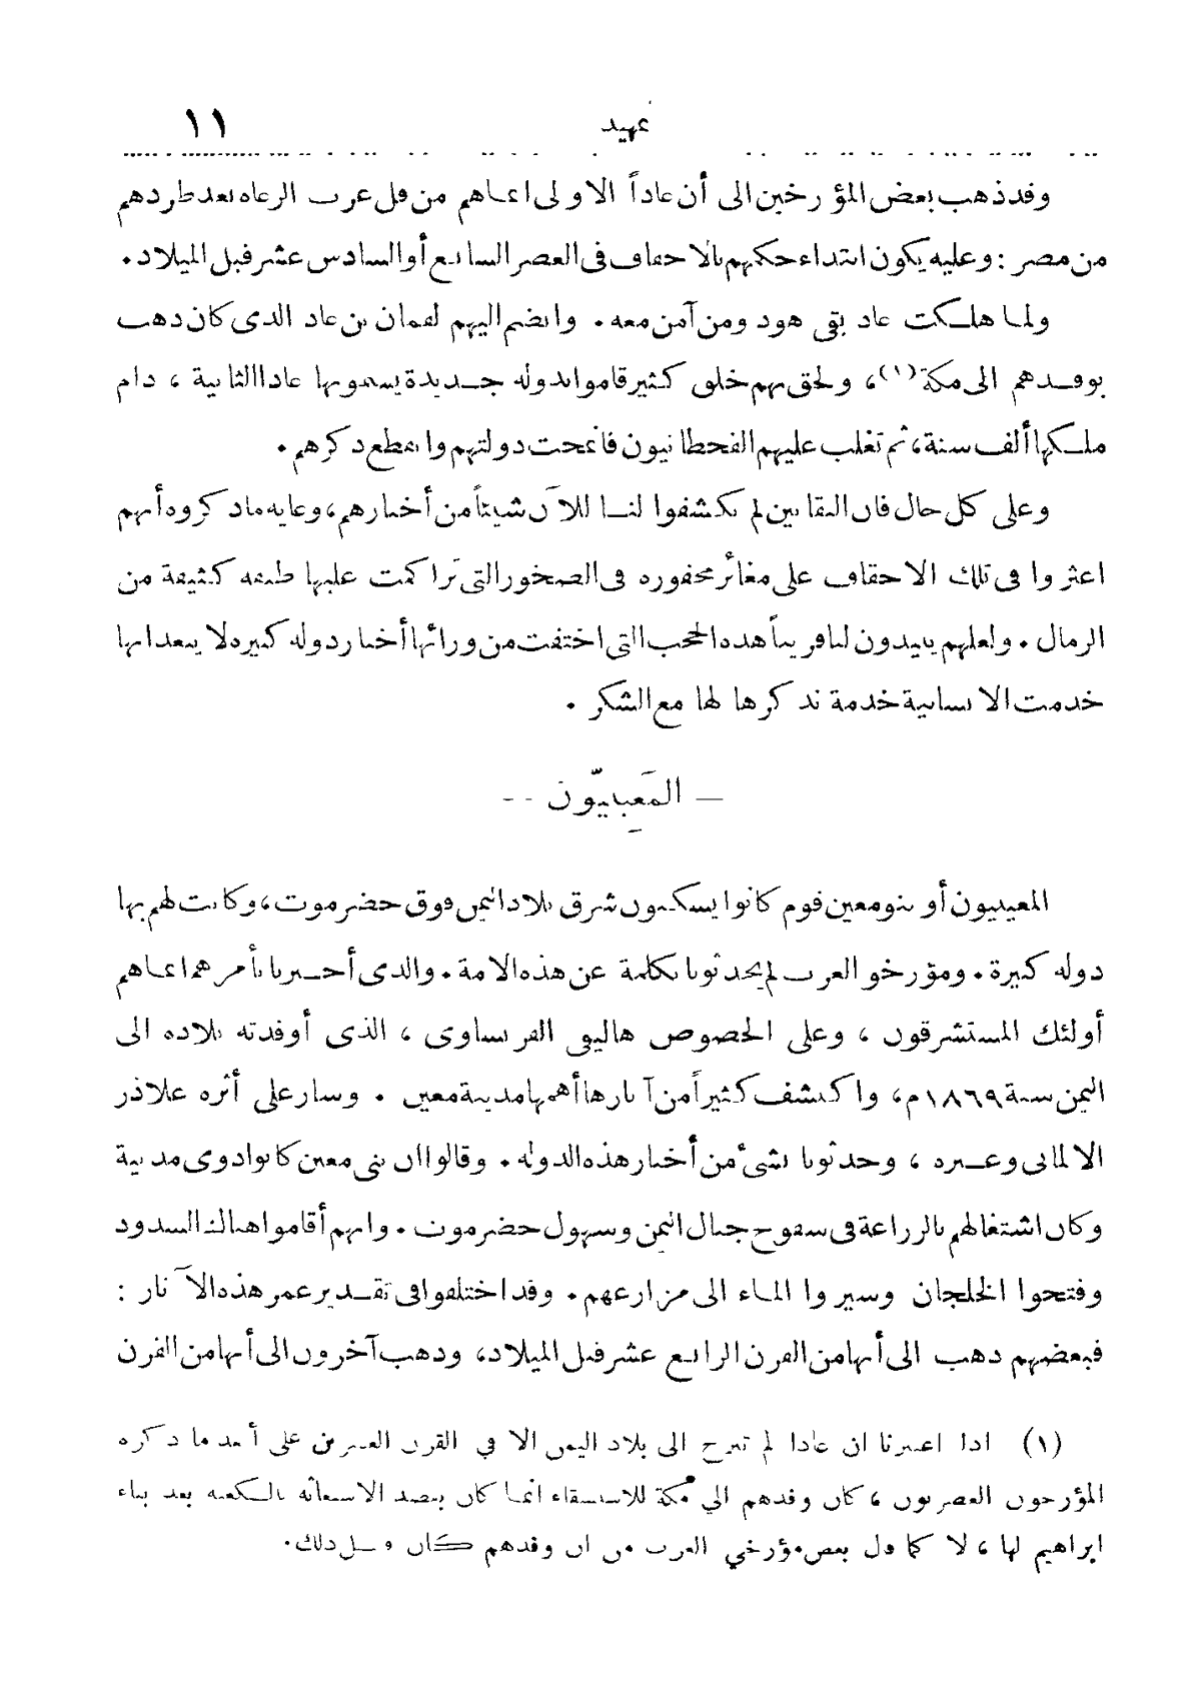 تمهيد ١١
وقد ذهب بعض المؤرخين الى أن عاداً الاولى انما هم من فل عرب الرعاه بعد طردهم
من مصر : وعليه يكون ابتداء حكمهم بالاحقاف فى العصر السابع أو السادس عشر قبل الميلاد .
ولما هلكت عاد بقى هود ومن آمن معه . وانضم اليهم لقمان بن عاد الذى كان ذهب
بوفدهم الى مكة (١) ، ولحق بهم خلق كثير قاموا بدوله جديدة يسمونها عادا الثانية ، دام
ملكها ألف سنة ، ثم تغلب عليهم القحطانيون فانمحت دولتهم وانقطع ذكرهم .
وعلى كل حال فان النقابين لم يكشفوا لنا للآن شيئاً من أخبارهم ، وغايه ماذكروه أنهم
اعثروا فى تلك الاحقاف على مغائر محفوره فى الصخور التى تراكمت عليها طبقه كثيفة من
الرمال . ولعلهم يبيدون لنا قريباً هذه الحجب التى اختفت من ورائها أخبار دوله كبيره لا يبعد انها
خدمت الانسانية خدمة نذكرها لها مع الشكر .
— المَعِينيّون --
المعينيون أو بنو معين قوم كانوا يسكنون شرق بلاد اليمن فوق حضرموت ، وكانت لهم بها
دوله كبيرة . ومؤرخو العرب لم يحدثونا بكلمة عن هذه الامة . والذى أخبرنا بأمرهم انما هم
أولئك المستشرقون ، وعلى الخصوص هاليفى الفرنساوى ، الذى أوفدته بلاده الى
اليمن سنة ١٨٦٩ م ، واكتشف كثيراً من آثارها أهمها مدينة معين . وسار على أثره غلاذر
الالمانى وغيره ، وحدثونا بشئ من أخبار هذه الدوله . وقالوا ان بنى معين كانوا ذوى مدنية
وكان اشتغالهم بالزراعة فى سفوح جبال اليمن وسهول حضرموت . وانهم أقاموا هنالك السدود
وفتحوا الخلجان وسيروا الماء الى مزارعهم . وقد اختلفوا فى تقدير عمر هذه الآثار :
فبعضهم ذهب الى أنها من القرن الرابع عشر قبل الميلاد ، وذهب آخرون الى أنها من القرن
(١) اذا اعتبرنا ان عادا لم تنزح الى بلاد اليمن الا في القرن العشرين على أبعد ما ذكره
المؤرخون العصريون ، كان وفدهم الي مكة للاستسقاء انما كان بقصد الاستغاثه بالكعبه بعد بناء
ابراهيم لها ، لا كما قال بعض مؤرخي العرب من ان وفدهم كان قبل ذلك .